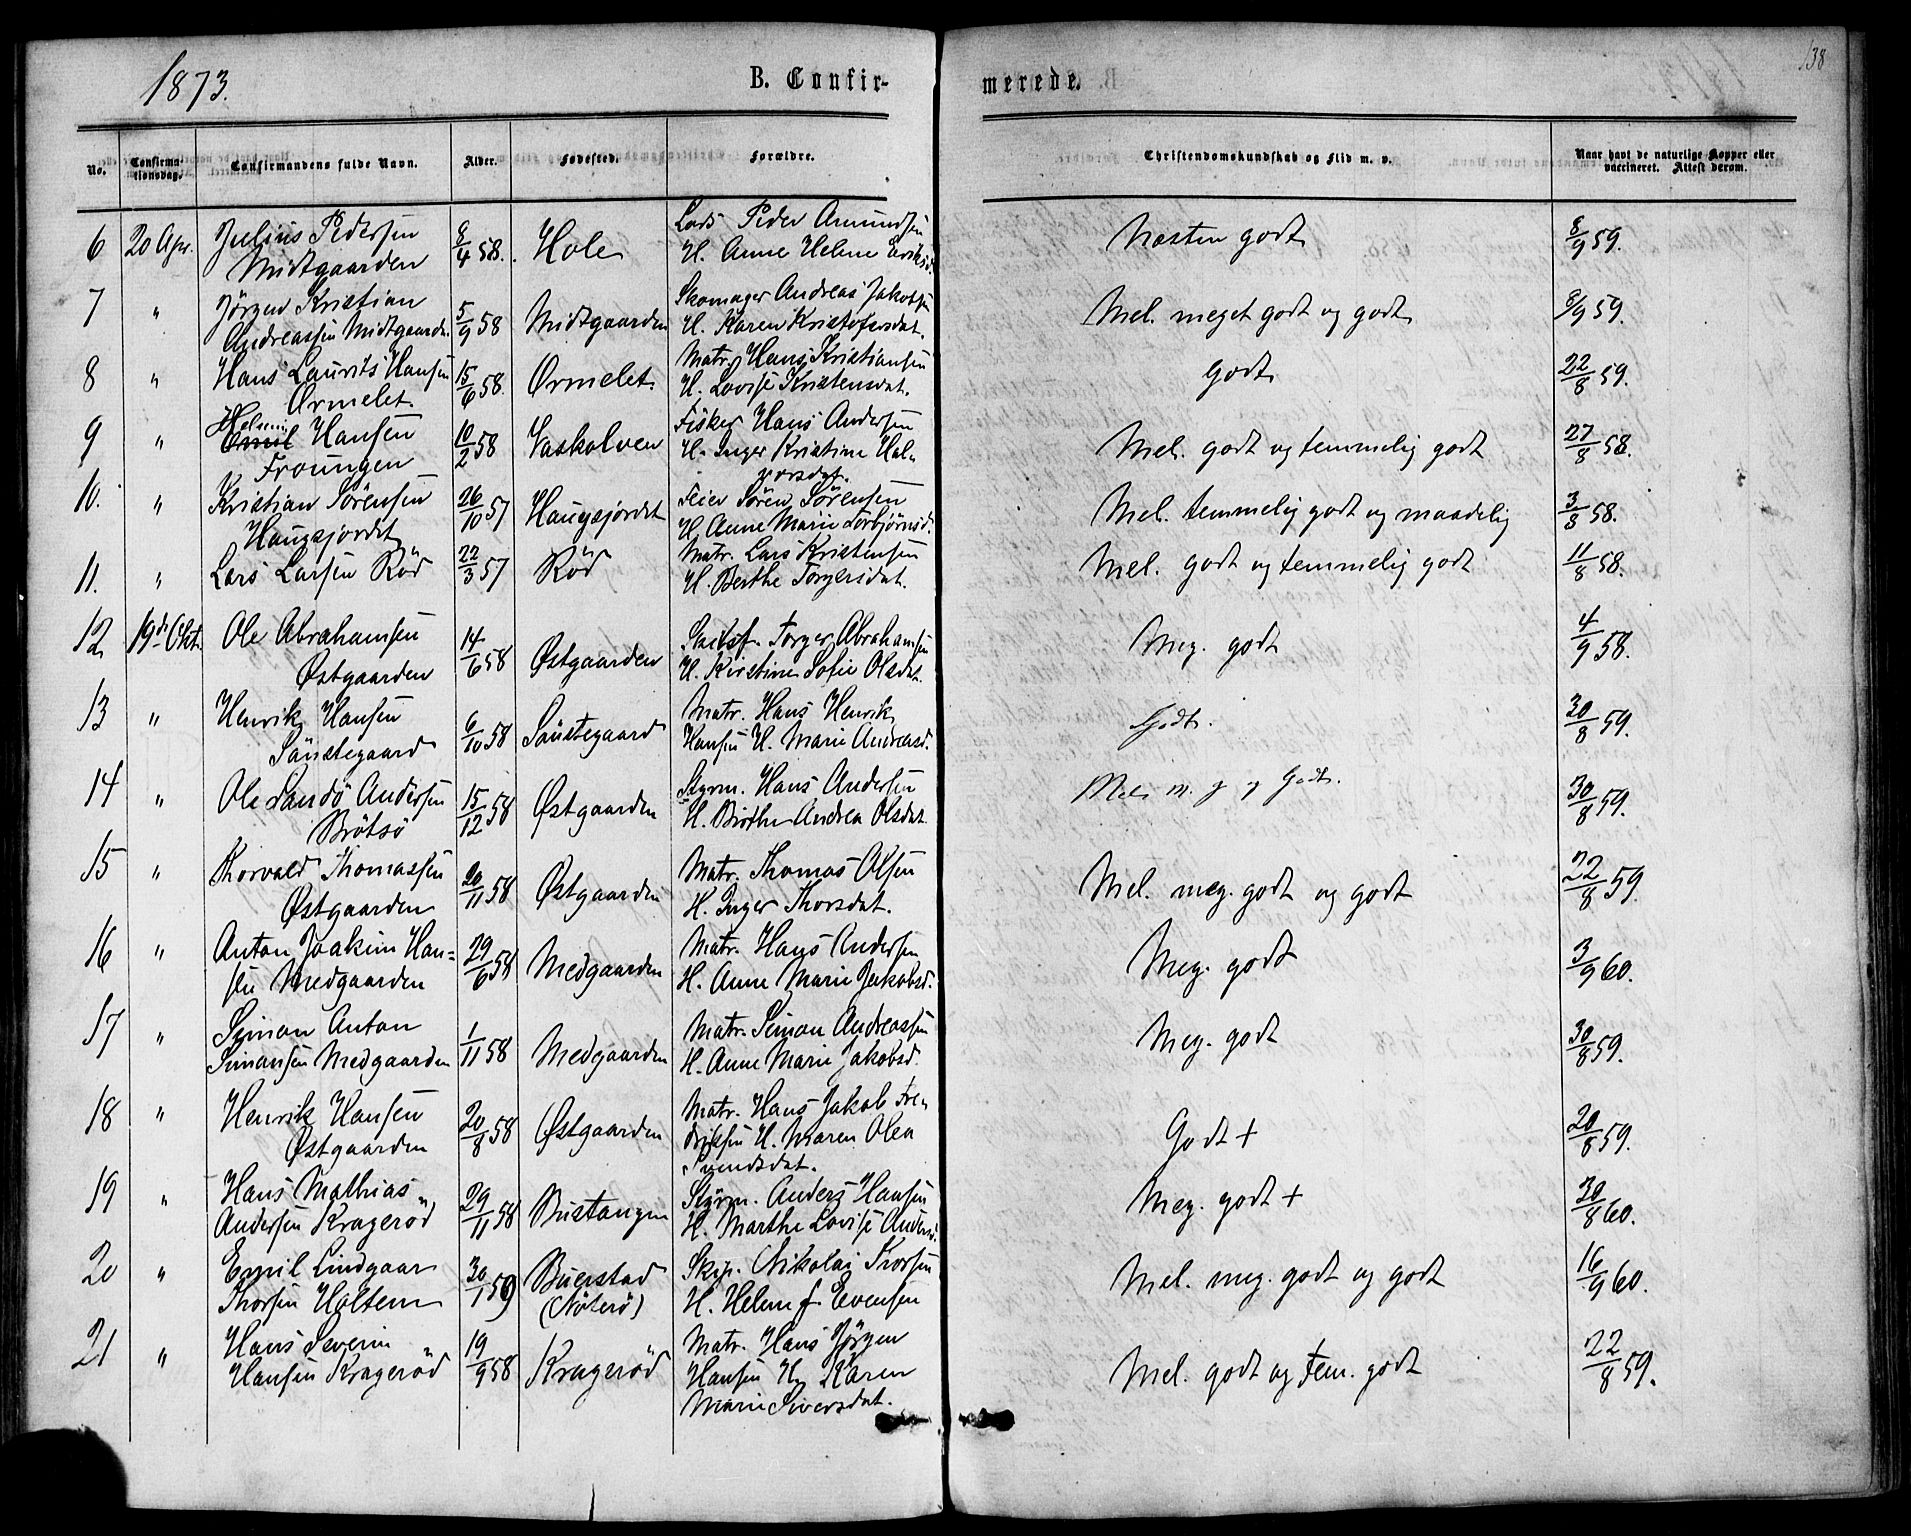 1873.
B. Confir-
merede.
138
No.
Confirma-
tionsdag.
Confirmandens fulde Navn.
Alder.
Fødested.
Forældre.
Christendomskundskab og Flid m. v.
Naar havt de naturlige Kopper eller
vaccineret. Attest derom.
6 20 Apr. Julius Pedersen
Midtgaarden
8/4 58. Hole
Lods Peder Amundsen
H. Anne Helene Eriksd.
Næsten godt
8/9 59.
7 " Jörgen Kristian
Andreassen Midtgaarden
5/9 58 Midtgaarden
Skomager Andreas Jakobsen
H. Karen Kristofersdat.
Mel. meget godt og godt
8/9 59.
8 " Hans Laurits Hansen
Ørmelet
15/6 58. Ørmelet.
Matr. Hans Kristiansen
H. Lovise Kristensdat.
Godt
22/8 59.
9 " Emil Hansen
10/2 58 Vaskalven
Fisker Hans Andersen
H. Inger Kristine Hal-
vorsdat.
Mel. godt og temmelig godt
27/8 58.
10. " Kristian Sörensen
Haugsjordet
26/10 57 Haugsjordet
Feier Sören Sörensen
H. Anne Marie Torbjörnsd.
Mel. temmelig godt og maadelig
3/8 58.
11. " Lars Larsen Röd
22/3 57 Röd
Matr. Lars Kristensen
H. Berthe Torgersdat.
Mel. godt og temmelig godt
11/8 58.
12 19de Okt. Ole Abrahamsen
Østgaarden
14/6 58 Østgaarden
Torger Abrahamsen
H. Kirstine Sofie Olsdat.
Meg. godt
4/9 58.
13 " Henrik Hansen
Sönstegaard
6/10 58 Sönstegaard
Matr. Hans Henrik
Hansen H. Marie Andreasd.
Godt.
30/8 59.
14 " Ole Sandö Andersen
Brötsö
15/12 58 Østgaarden
Styrm. Hans Andersen
H. Birthe Andrea Olsdat.
Mel. m. g og Godt.
30/8 59.
15 " Thorvald Thomassen
Østgaarden
20/11 58 Østgaarden
Matr. Thomas Olsen
H. Inger Thorsdat.
Mel. meg. godt og godt
22/8 59.
16 " Anton Joakim Han-
sen Medgaarden
29/6 58 Medgaarden
Matr. Hans Andersen
H. Anne Marie Jakobsd.
Meg. godt
3/9 60.
17 " Simon Anton
Simonsen Medgaarden
1/11 58 Medgaarden
Matr. Simon Andreassen
H. Anne Marie Jakobsd.
Meg. godt
30/8 59.
18 " Henrik Hansen
Østgaarden
20/8 58 Østgaarden
Matr. Hans Jakob Fre-
driksen H. Maren Olea
Svendsdat.
Godt +
20/8 59.
19 " Hans Mathias
Andersen Krageröd
29/11 58 Bustangen
Styrm. Anders Hansen
H. Marthe Lovise Andersd.
Meg. godt +
30/8 60.
20 " Emil Lindgaar
Thorsen Holtem
30/1 59 Buerstad
(Nöterö)
Skip. Nikolai Thorsen
H. Helene f. Evensen
Mel. meg. godt og godt
16/9 60.
21 " Hans Severin
Hansen Krageröd
19/9 58 Krageröd
Matr. Hans Jörgen
Hansen H. Karen
Marie Siversdat.
Mel. godt og tem. godt
22/8 59.